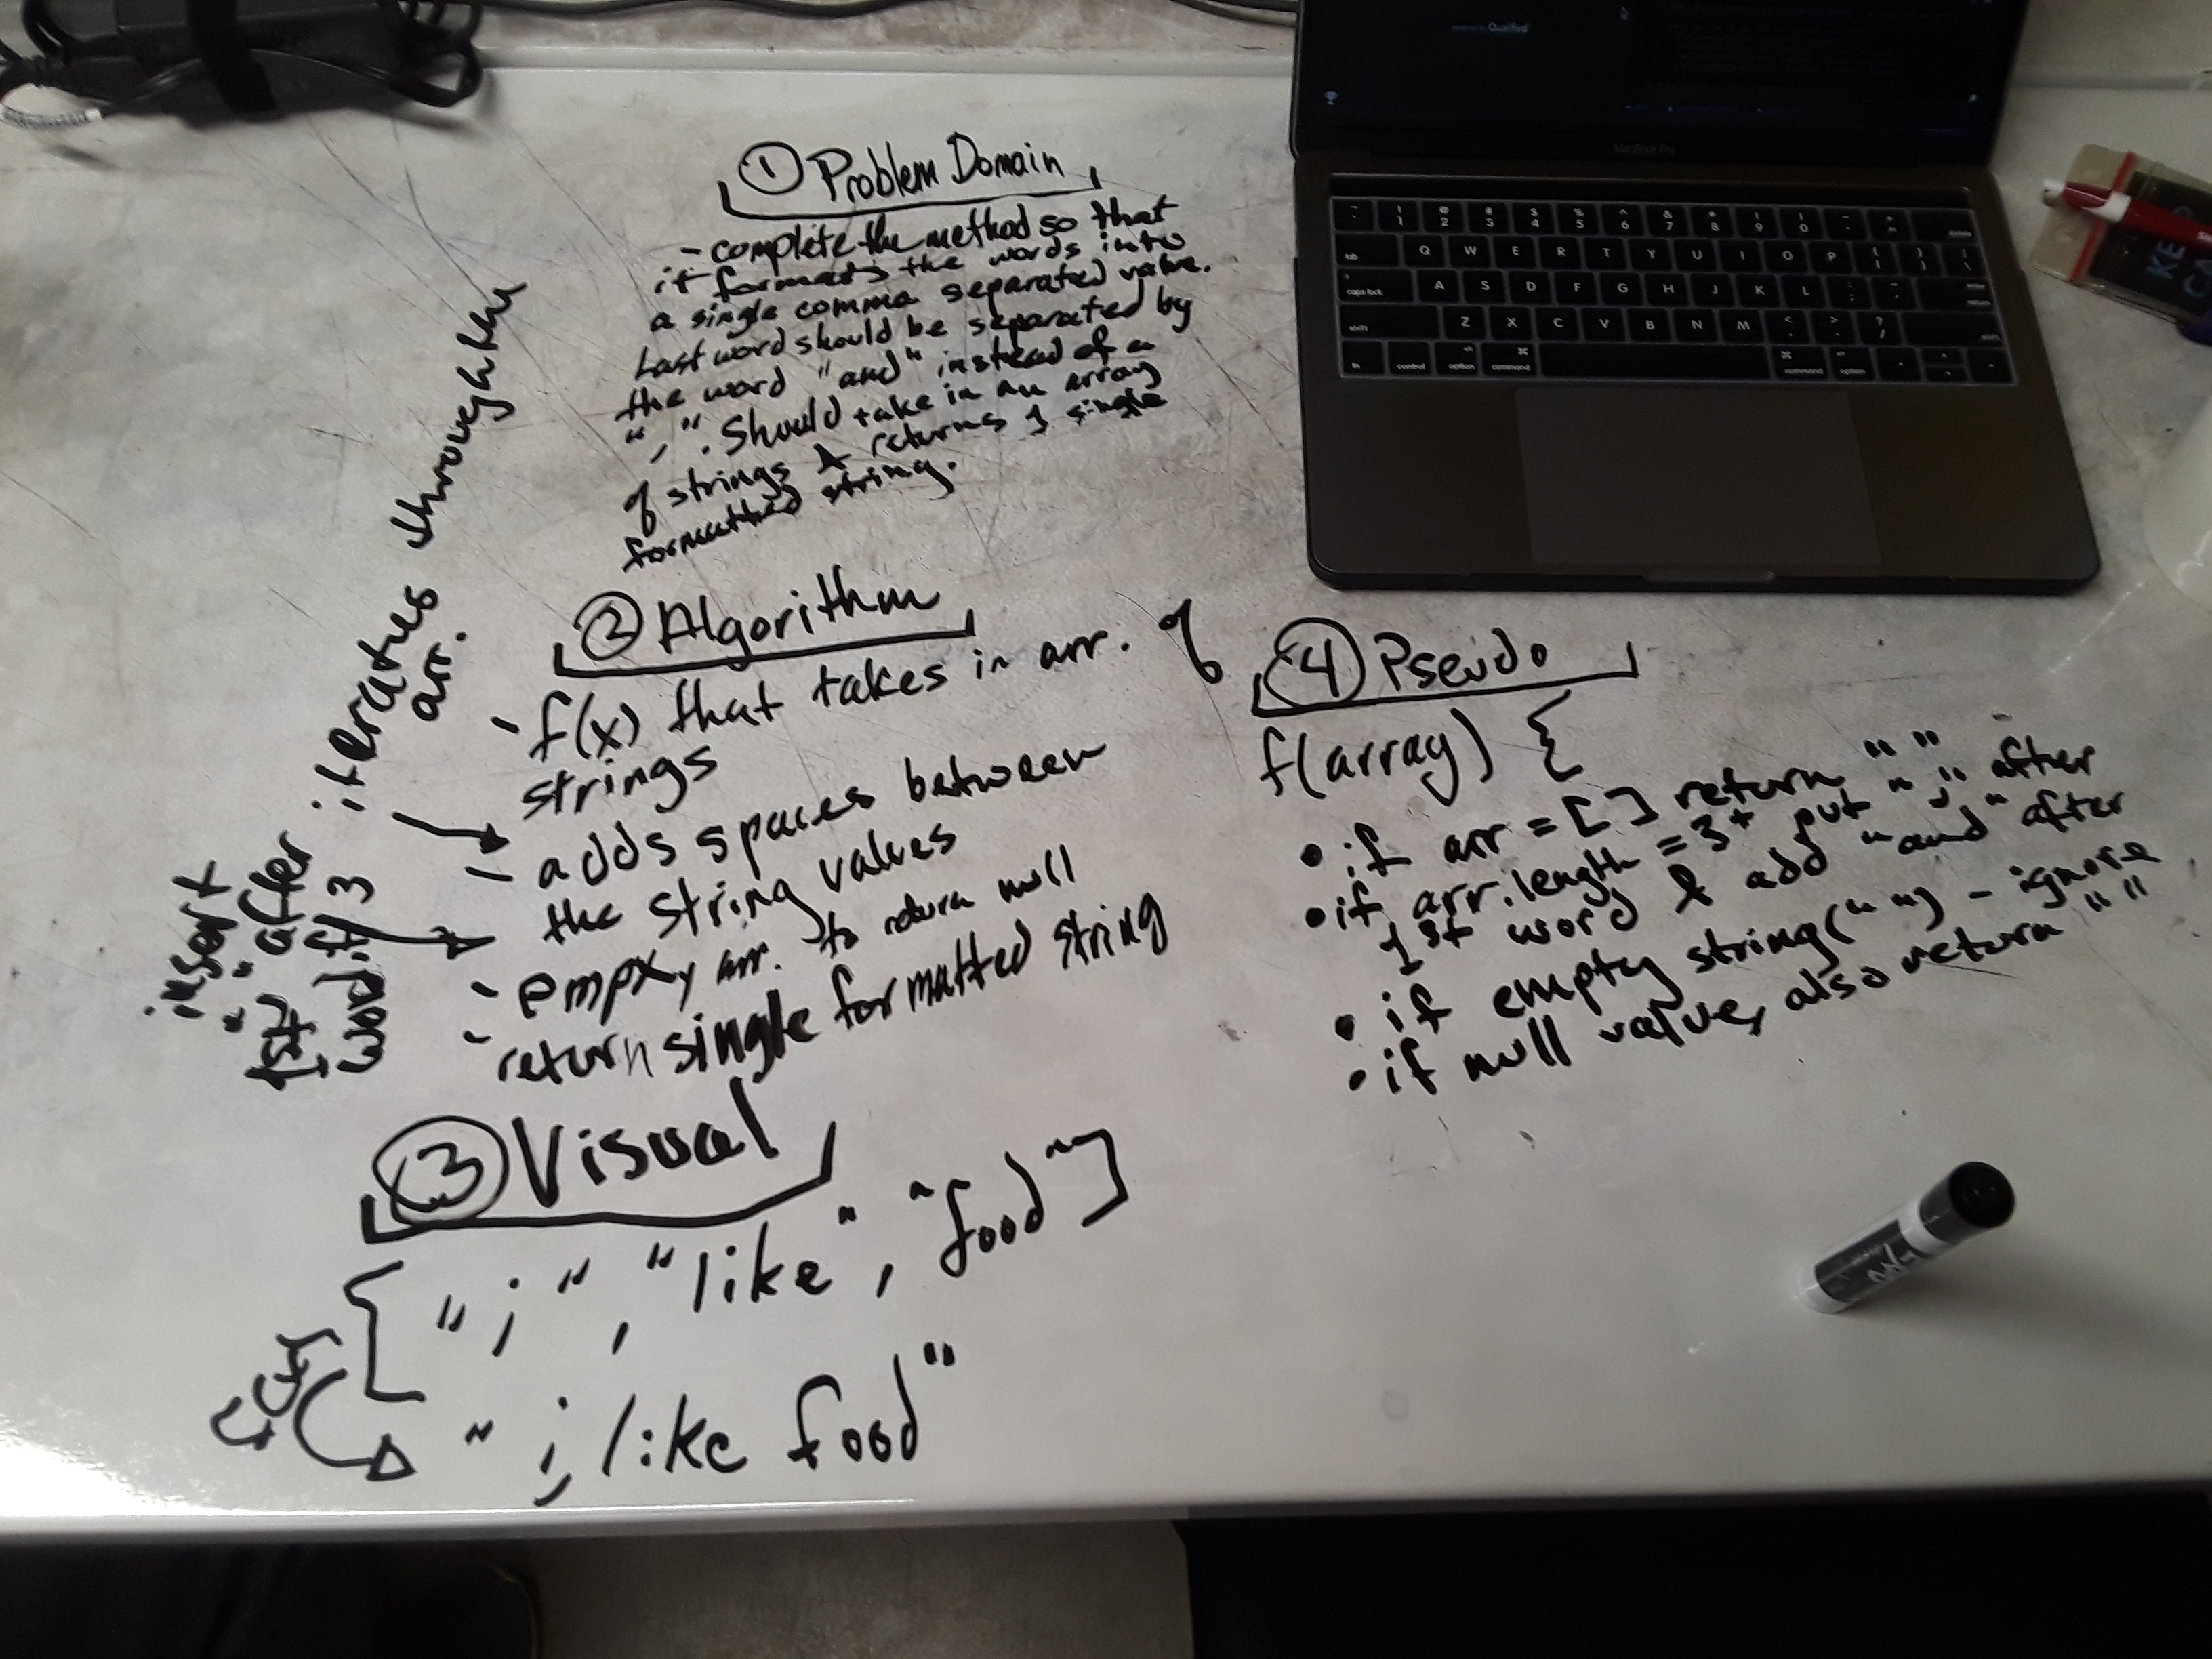 ① Problem Domain
- complete the method so that
it formats the words into
a single comma separated value.
Last word should be separated by
the word "and" instead of a
",". Should take in an array
of strings & returns 1 single
formatted string.
② Algorithm
- f(x) that takes in arr. of
strings
- adds spaces between
the string values
- empty arr. to return null
- return single formatted string
iterates through the
arr.
insert
"," after
1st word if 3
③ Visual
["i", "like", "food"]
"i, like food"
④ Pseudo
f(array) {
• if arr = [] return " "
• if arr.length = 3+ put "," after
1st word & add "and" after
• if empty string (" ") - ignore
• if null value, also return " "
powered by Qualified
MacBook Pro
~ ! @ # $ % ^ & * ( ) - +
1 2 3 4 5 6 7 8 9 0 delete
tab Q W E R T Y U I O P { }
caps lock A S D F G H J K L : " enter
return
shift Z X C V B N M < > ? shift
fn control option command command option
KE
CA